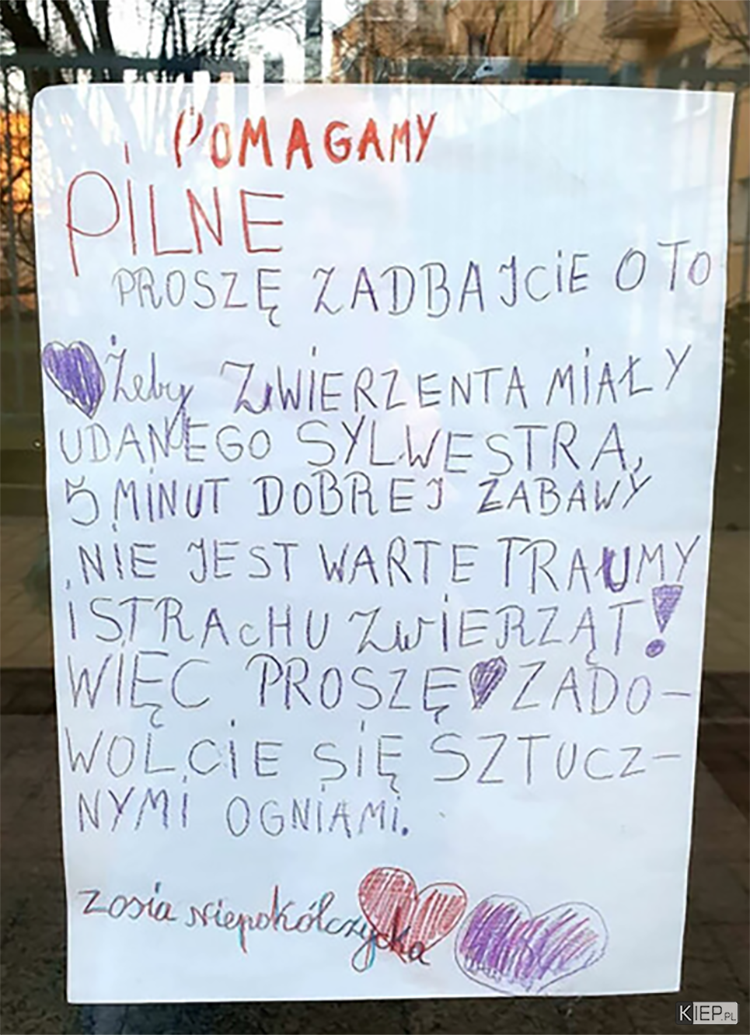 POMAGAMY
PILNE
PROSZĘ ZADBAJCIE O TO
Żeby ZWIERZENTA MIAŁY
UDANEGO SYLWESTRA,
5 MINUT DOBREJ ZABAWY
NIE JEST WARTE TRAUMY
I STRACHU ZWIERZĄT!
WIĘC PROSZĘ ZADO-
WOLCIE SIĘ SZTUCZ-
NYMI OGNIAMI.
Zosia Niepokólczycka
KIEP.PL